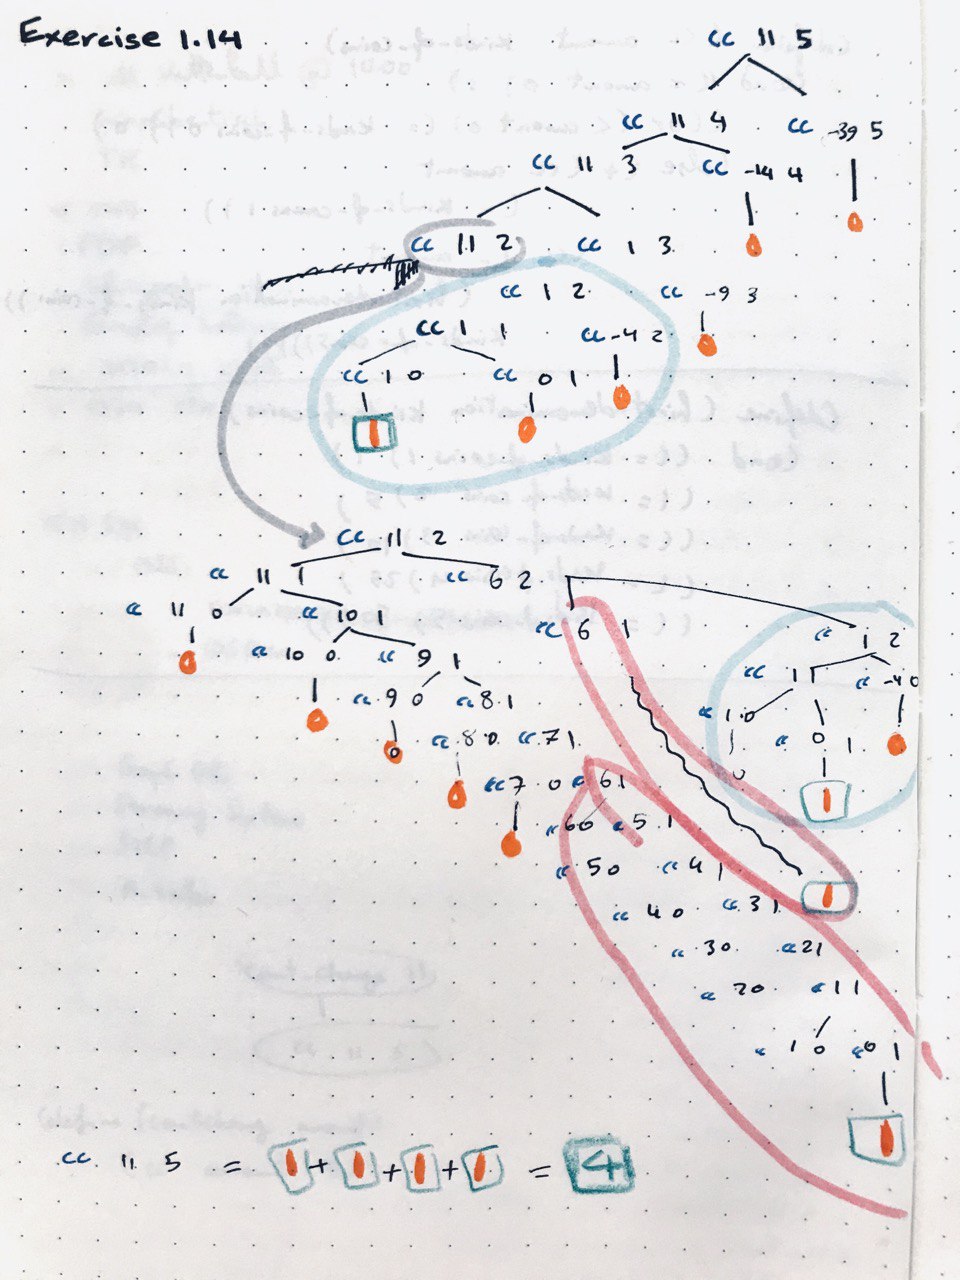 Exercise 1.14
cc 11 5
cc 11 4 cc -39 5
cc 11 3 cc -14 4
cc 11 2 cc 1 3
cc 1 2 cc -9 3
cc 1 1 cc -4 2
cc 1 0 cc 0 1
1
cc 11 2
cc 11 1 cc 6 2
cc 11 0 cc 10 1 cc 6 1 cc 1 2
cc 10 0 cc 9 1 cc 1 1 cc -4 0
cc 9 0 cc 8 1 cc 1 0
cc 8 0 cc 7 1 cc 0 1
cc 7 0 cc 6 1 0 1
cc 6 0 cc 5 1
cc 5 0 cc 4 1 1
cc 4 0 cc 3 1
cc 3 0 cc 2 1
cc 2 0 cc 1 1
cc 1 0 cc 0 1
1
cc 11 5 = 1 + 1 + 1 + 1 = 4